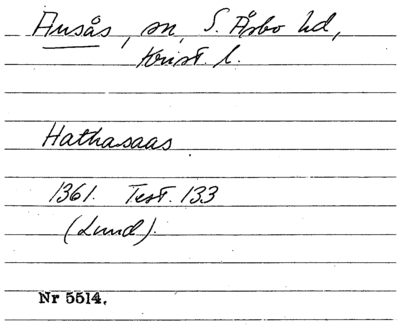 Ausås, sn, S. Åsbo hd,
Krist. l.
Hathasaas
1361. Test. 133
(Lund).
Nr 5514.